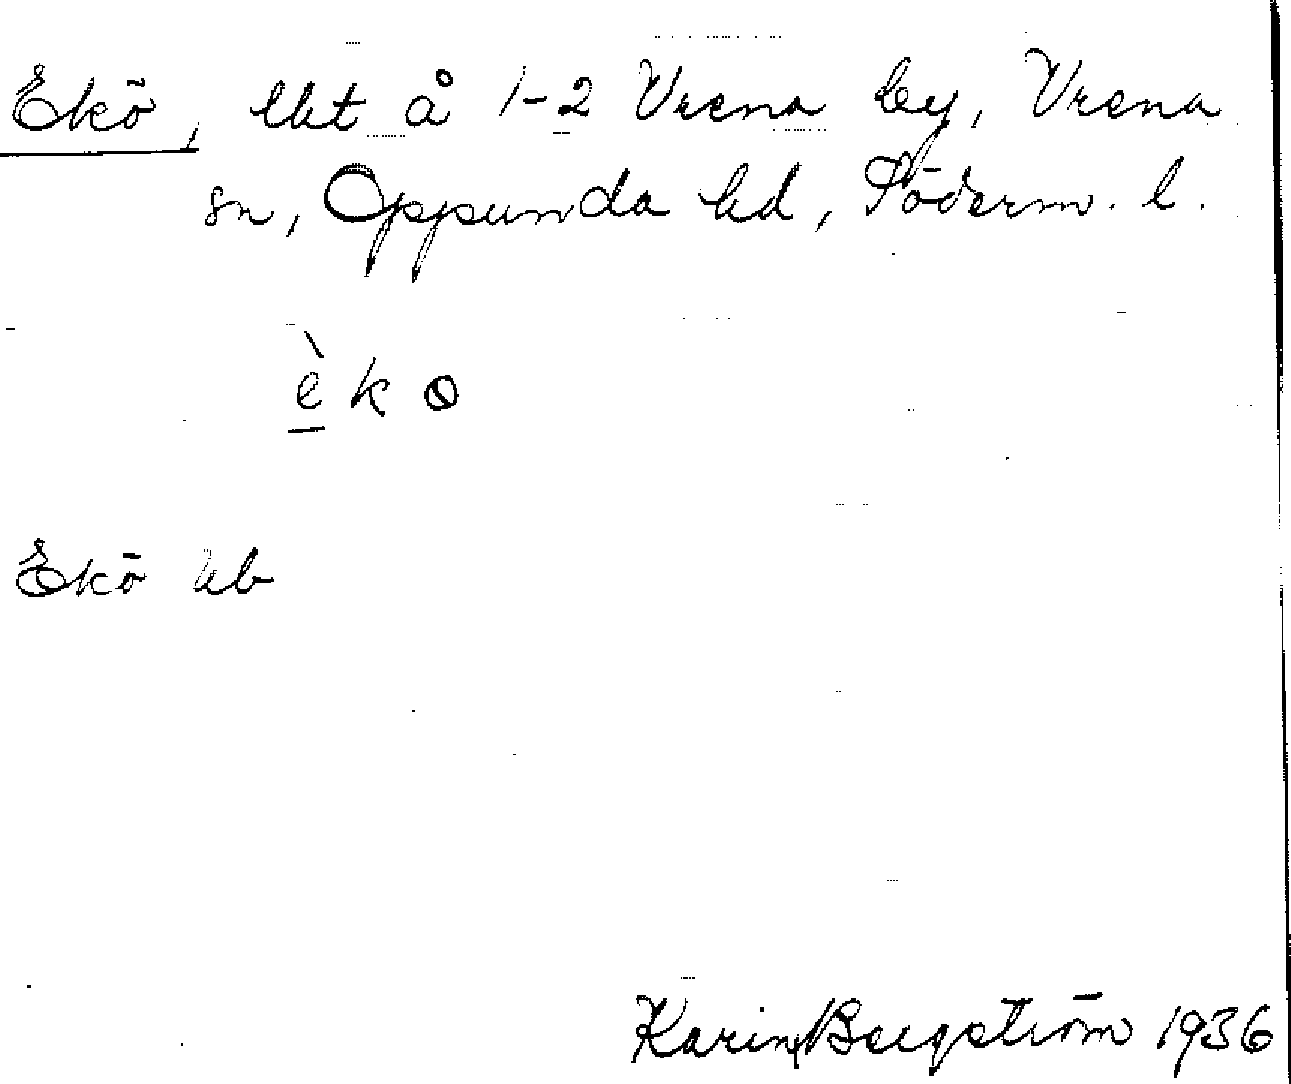 Ekö, lht å 1-2 Vrena by, Vrena
sn, Oppunda hd, Söderm. l.
èkө
Ekö hb
Karin Bergström 1936